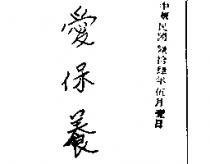 中華民國拾年伍月壹日
愛保養